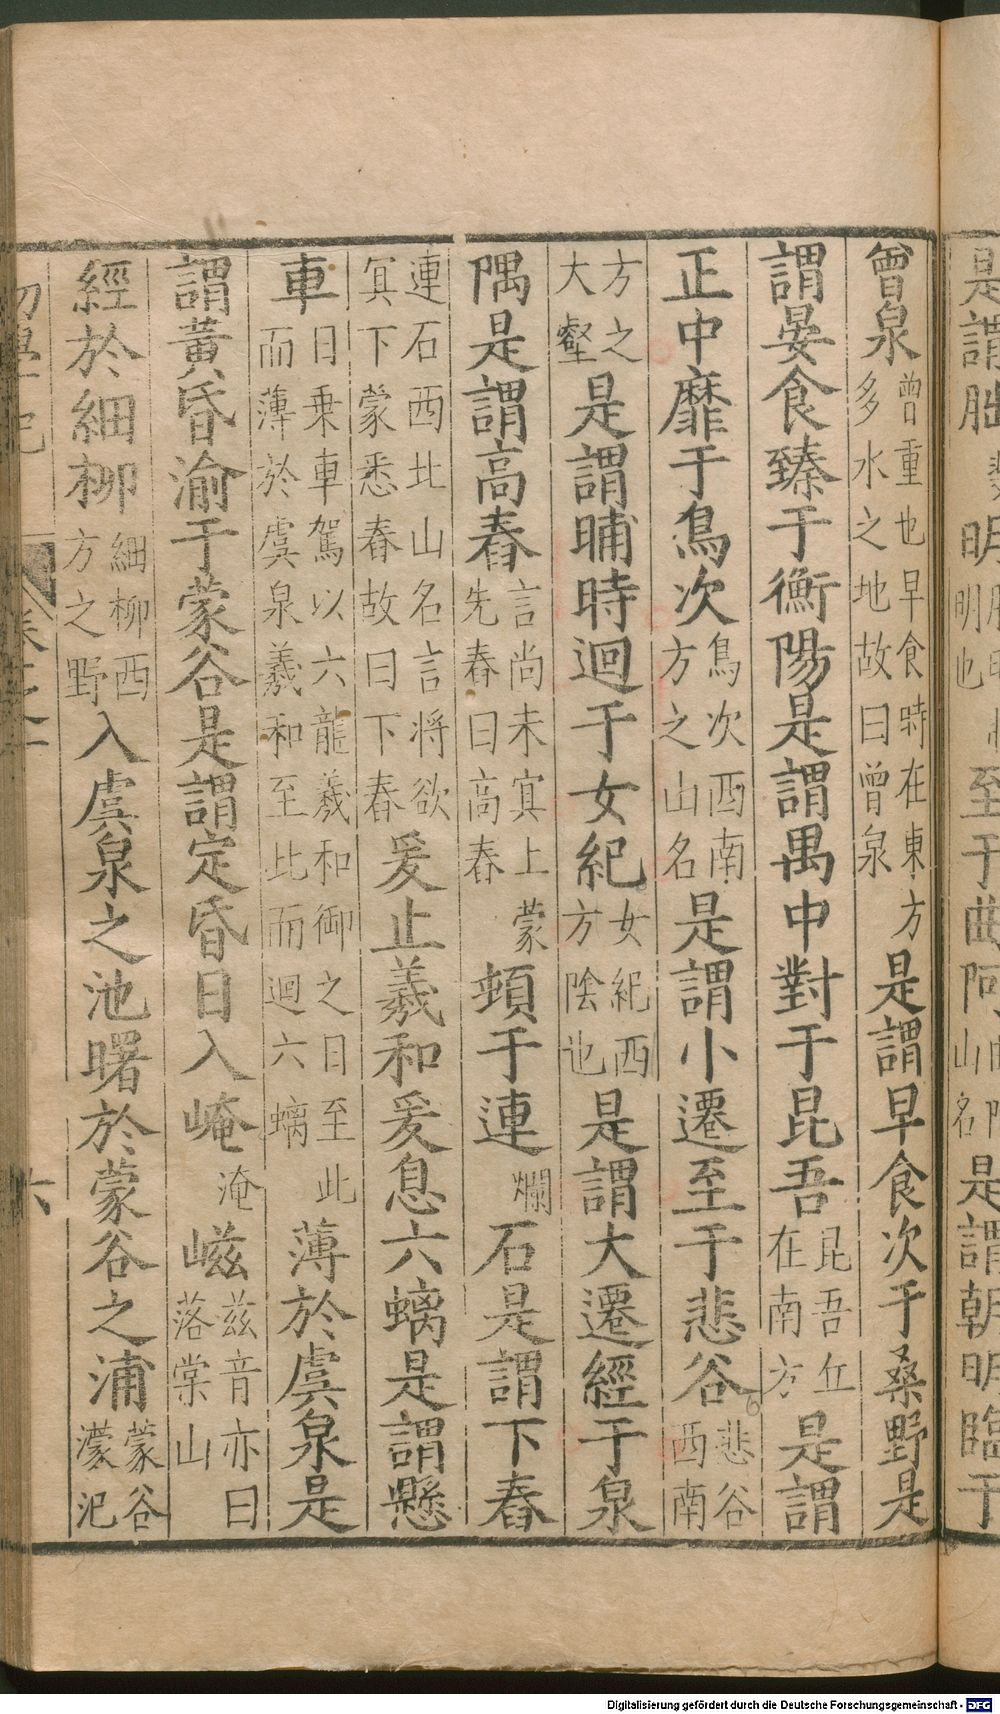 是謂朏明明也至于曲阿山名是謂朝明臨于
曾泉曾重也早食時在東方多水之地故曰曾泉是謂早食次于桑野是
謂晏食臻于衡陽是謂禺中對于昆吾昆吾丘在南方是謂
正中靡于鳥次鳥次西南方之山名是謂小遷至于悲谷悲谷西南
方之大壑是謂晡時迴于女紀女紀西方陰也是謂大遷經于泉
隅是謂高舂言尚未冥上蒙先舂曰高舂頓于連爛石是謂下舂
連石西北山名言將欲冥下蒙悉舂故曰下舂爰止羲和爰息六螭是謂懸
車日乗車駕以六龍羲和御之日至此而薄於虞泉羲和至比而迴六螭薄於虞泉是
謂黃昏渝于蒙谷是謂定昏日入崦淹嵫兹音亦曰落棠山
經於細柳細柳西方之野入虞泉之池曙於蒙谷之浦蒙谷濛汜
初學記 卷之一 六
Digitalisierung gefördert durch die Deutsche Forschungsgemeinschaft - DFG